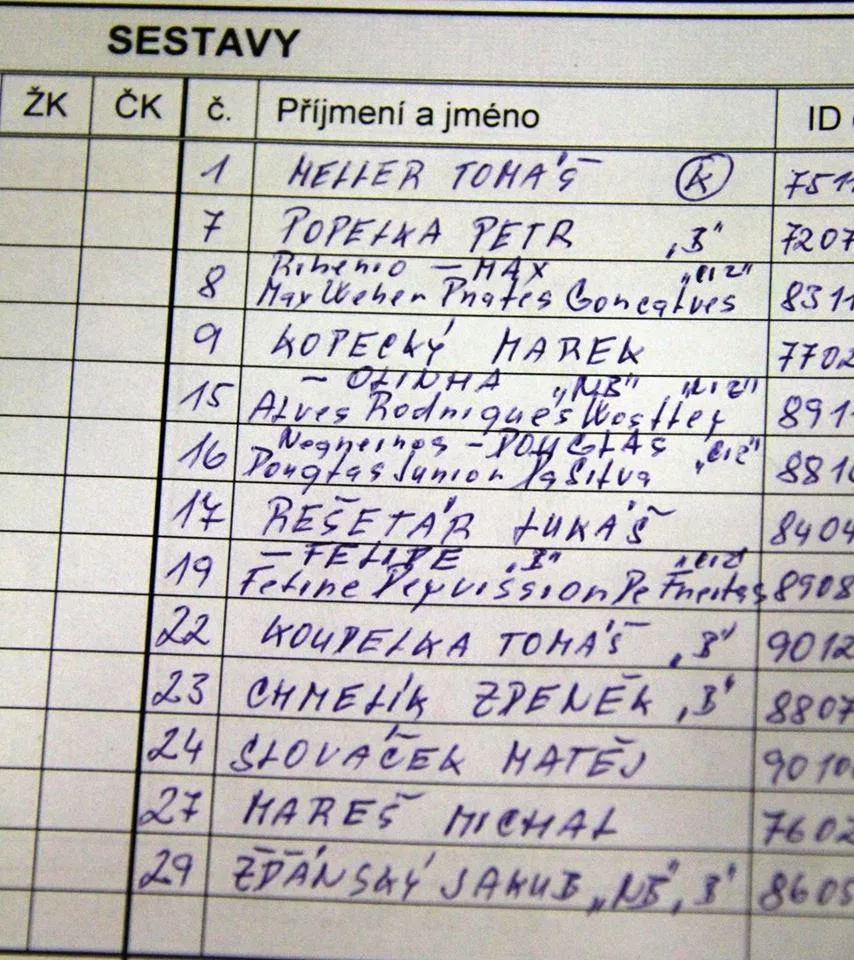 SESTAVY
ŽK ČK č. Příjmení a jméno ID
1 MELLER TOMÁŠ K 7511
7 POPELKA PETR „B" 7207
Ribeiro – MAX „CIZ"
8 Max Weber Prates Goncalves 8311
9 KOPECKÝ MAREK 7702
– OLINHA „NB" „CIZ"
15 Alves Rodrigues Wostley 8911
– DOUGLAS „CIZ"
16 Douglas Junior Da Silva 8810
17 REŠETÁR LUKÁŠ 8404
– FELIPE „B" „CIZ"
19 Feline De Freitas 8908
22 KOUDELKA TOMÁŠ „B" 9012
23 CHMELÍK ZDENĚK „B" 8807
24 SLOVAČEK MATĚJ 9010
27 MAREŠ MICHAL 7602
29 ŽĎÁNSKÝ JAKUB „NB", B" 8605